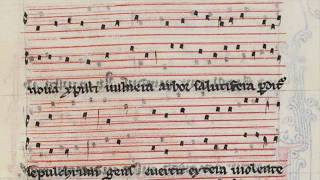 noua xpisti uulnera arbor salutifera
sepulchrum gens euertit extera uiolente